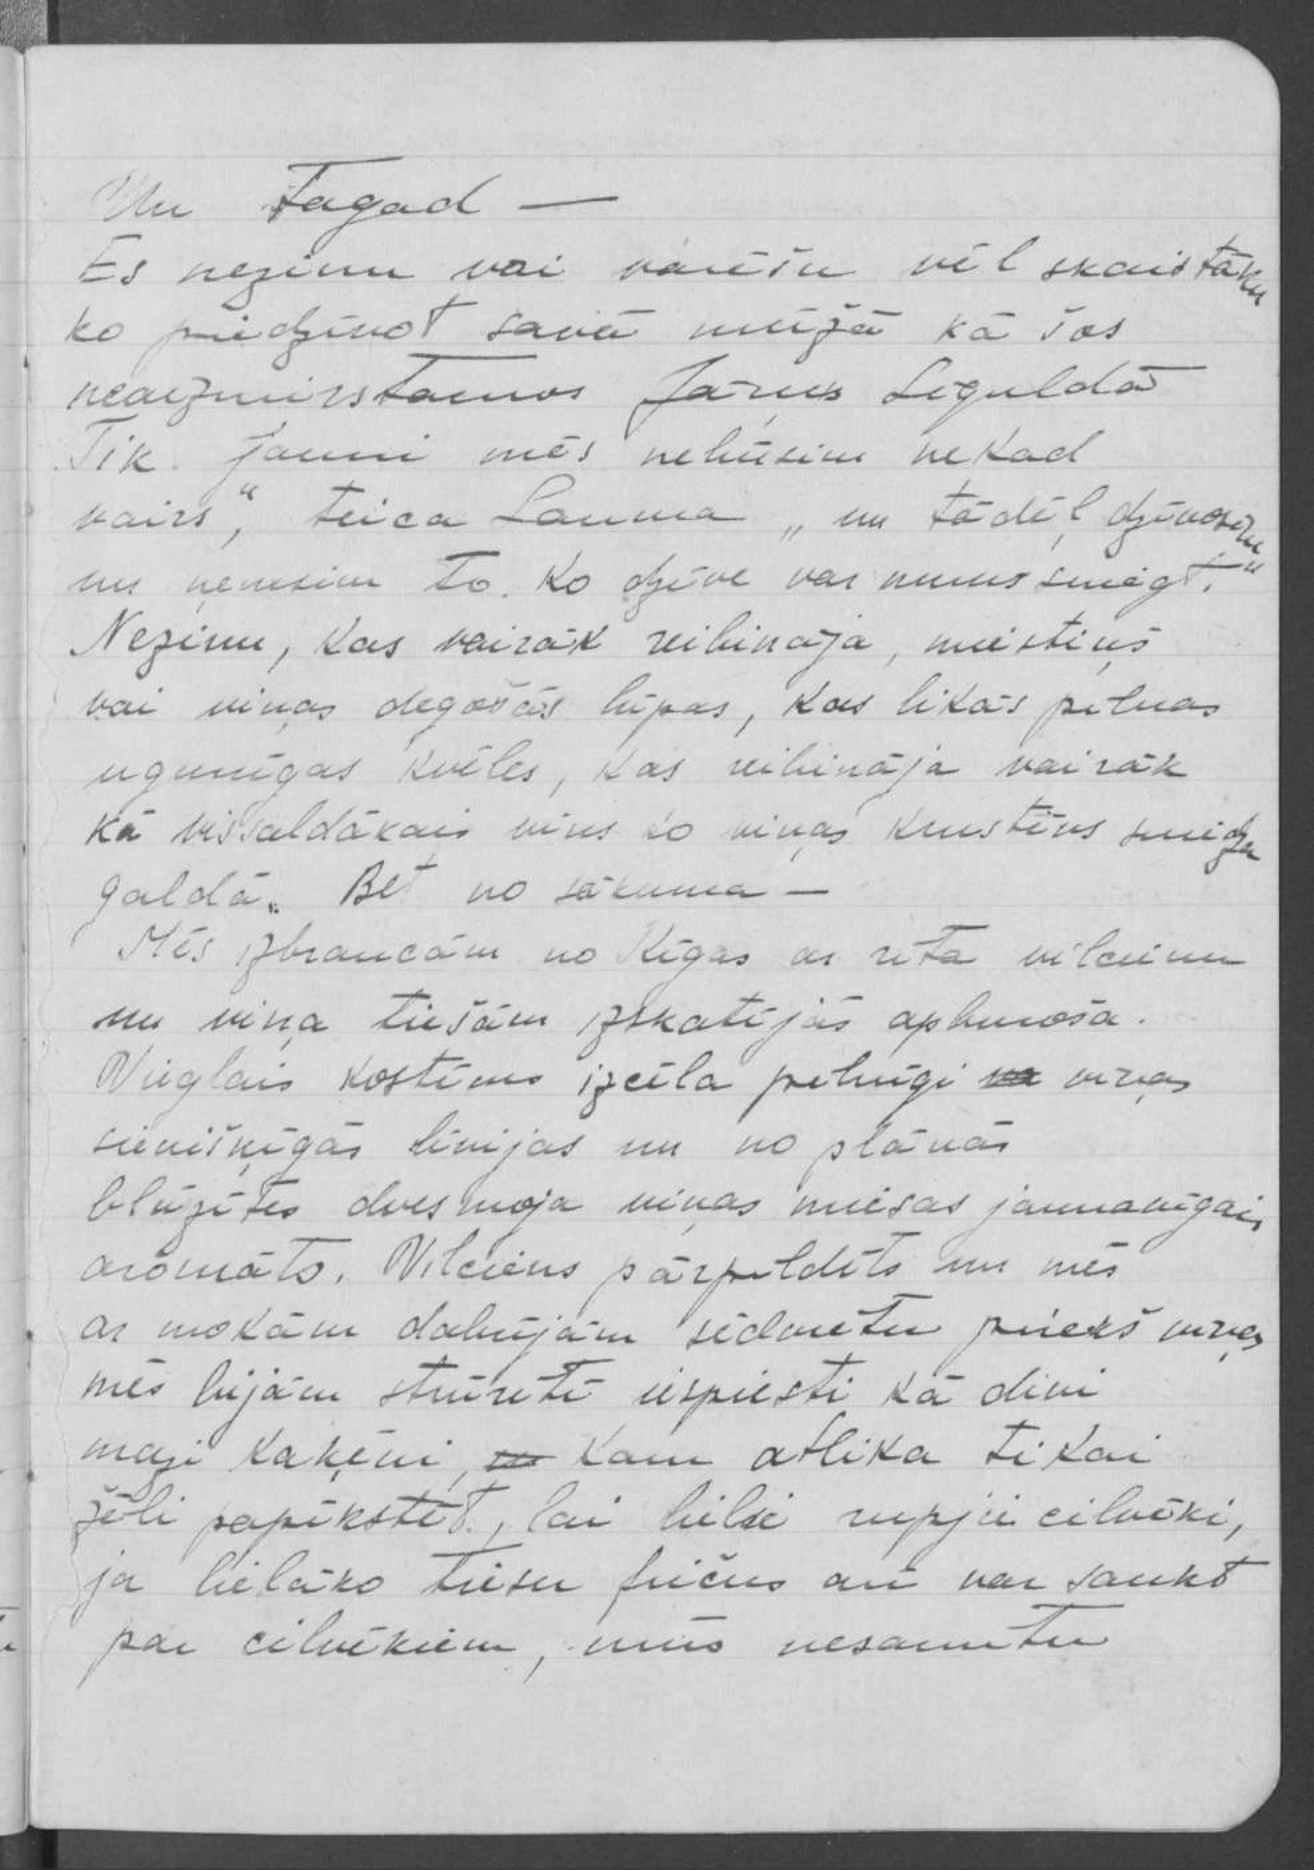 Un Tagad —
Es nezinu vai varēšu vēl skaistāku
ko piedzīvot savā mūžā kā šos
neaizmirstamos Jāņus Siguldā
Tik jauni mēs nebūsim nekad
vairs", teica Lauma „un tādēļ dzīvosim
un ņemsim to ko dzīve var mums sniegt."
Nezinu, kas vairāk reibināja, miestiņš
vai viņas degošās lūpas, kas likās pilnas
ugunīgas kvēles, kas reibināja vairāk
kā vissaldākais vīns ko viņas krustēvs sniedza
galdā. Bet no sākuma —
Mēs izbraucām no Rīgas ar rīta vilcienu
un viņa tiešām izskatījās apburoša.
Vieglais kostīms izcēla pilnīgi viņas
sievišķīgās līnijas un no plānās
blūzītes dvesmoja viņas miesas jaunavīgais
aromāts. Vilciens pārpildīts un mēs
ar mokām dabūjām sēdvietu priekš viņas
mēs bijām stūrītī iespiesti kā divi
mazi kaķēni, kam atlika tikai
žēli papīkstēt, lai lielie rupjie cilvēki,
ja lielāko tiesu fričus arī var saukt
par cilvēkiem, mūs nesamītu